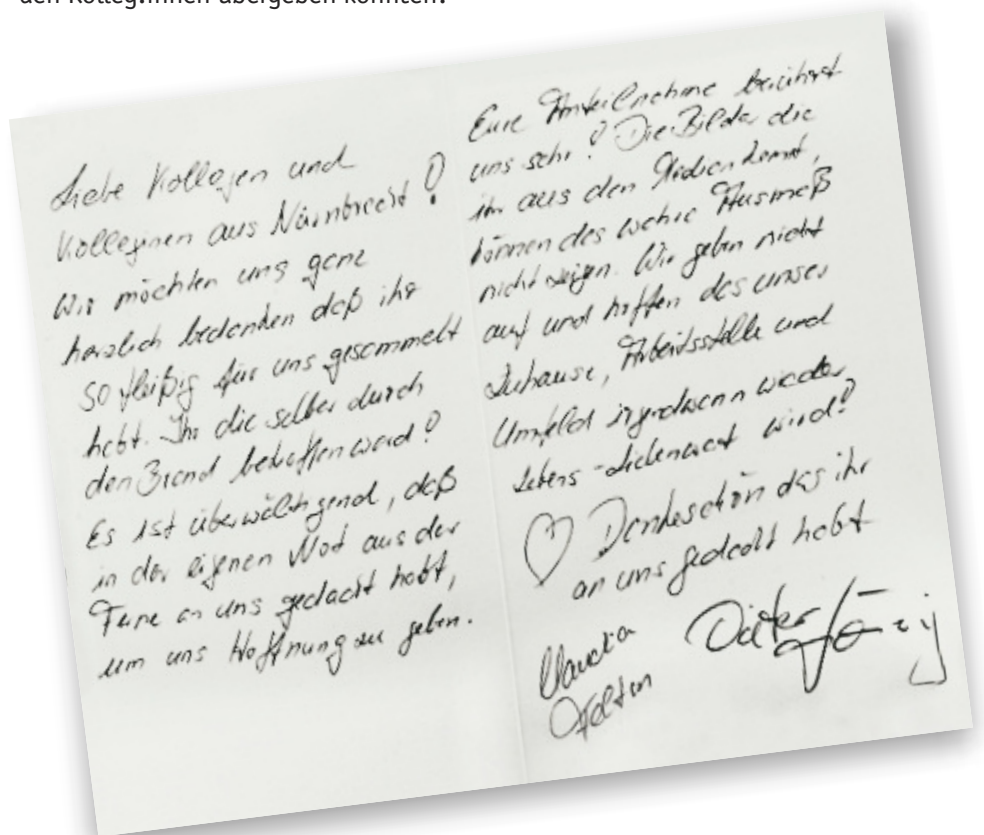 den Kolleg:innen übergeben konnten.
Liebe Kollegen und
Kolleginen aus Nürnbrecht!
Wir möchten uns ganz
herzlich bedanken daß ihr
so fleißig für uns gesammelt
habt. Ihr die selber durch
den Brand betroffen ward!
Es ist überwältigend, daß
in der eigenen Not aus der
Ferne an uns gedacht habt,
um uns Hoffnung zu geben.
Eure Anteilnahme berührt
uns sehr! Die Bilder die
ihr aus den Medien kennt,
können das wahre Ausmaß
nicht zeigen. Wir geben nicht
auf und hoffen das unser
Zuhause, Arbeitsstelle und
Umfeld irgendwann wieder
Lebens-Liebenwert wird!
Dankeschön das ihr
an uns gedacht habt
Claudia
Dieter